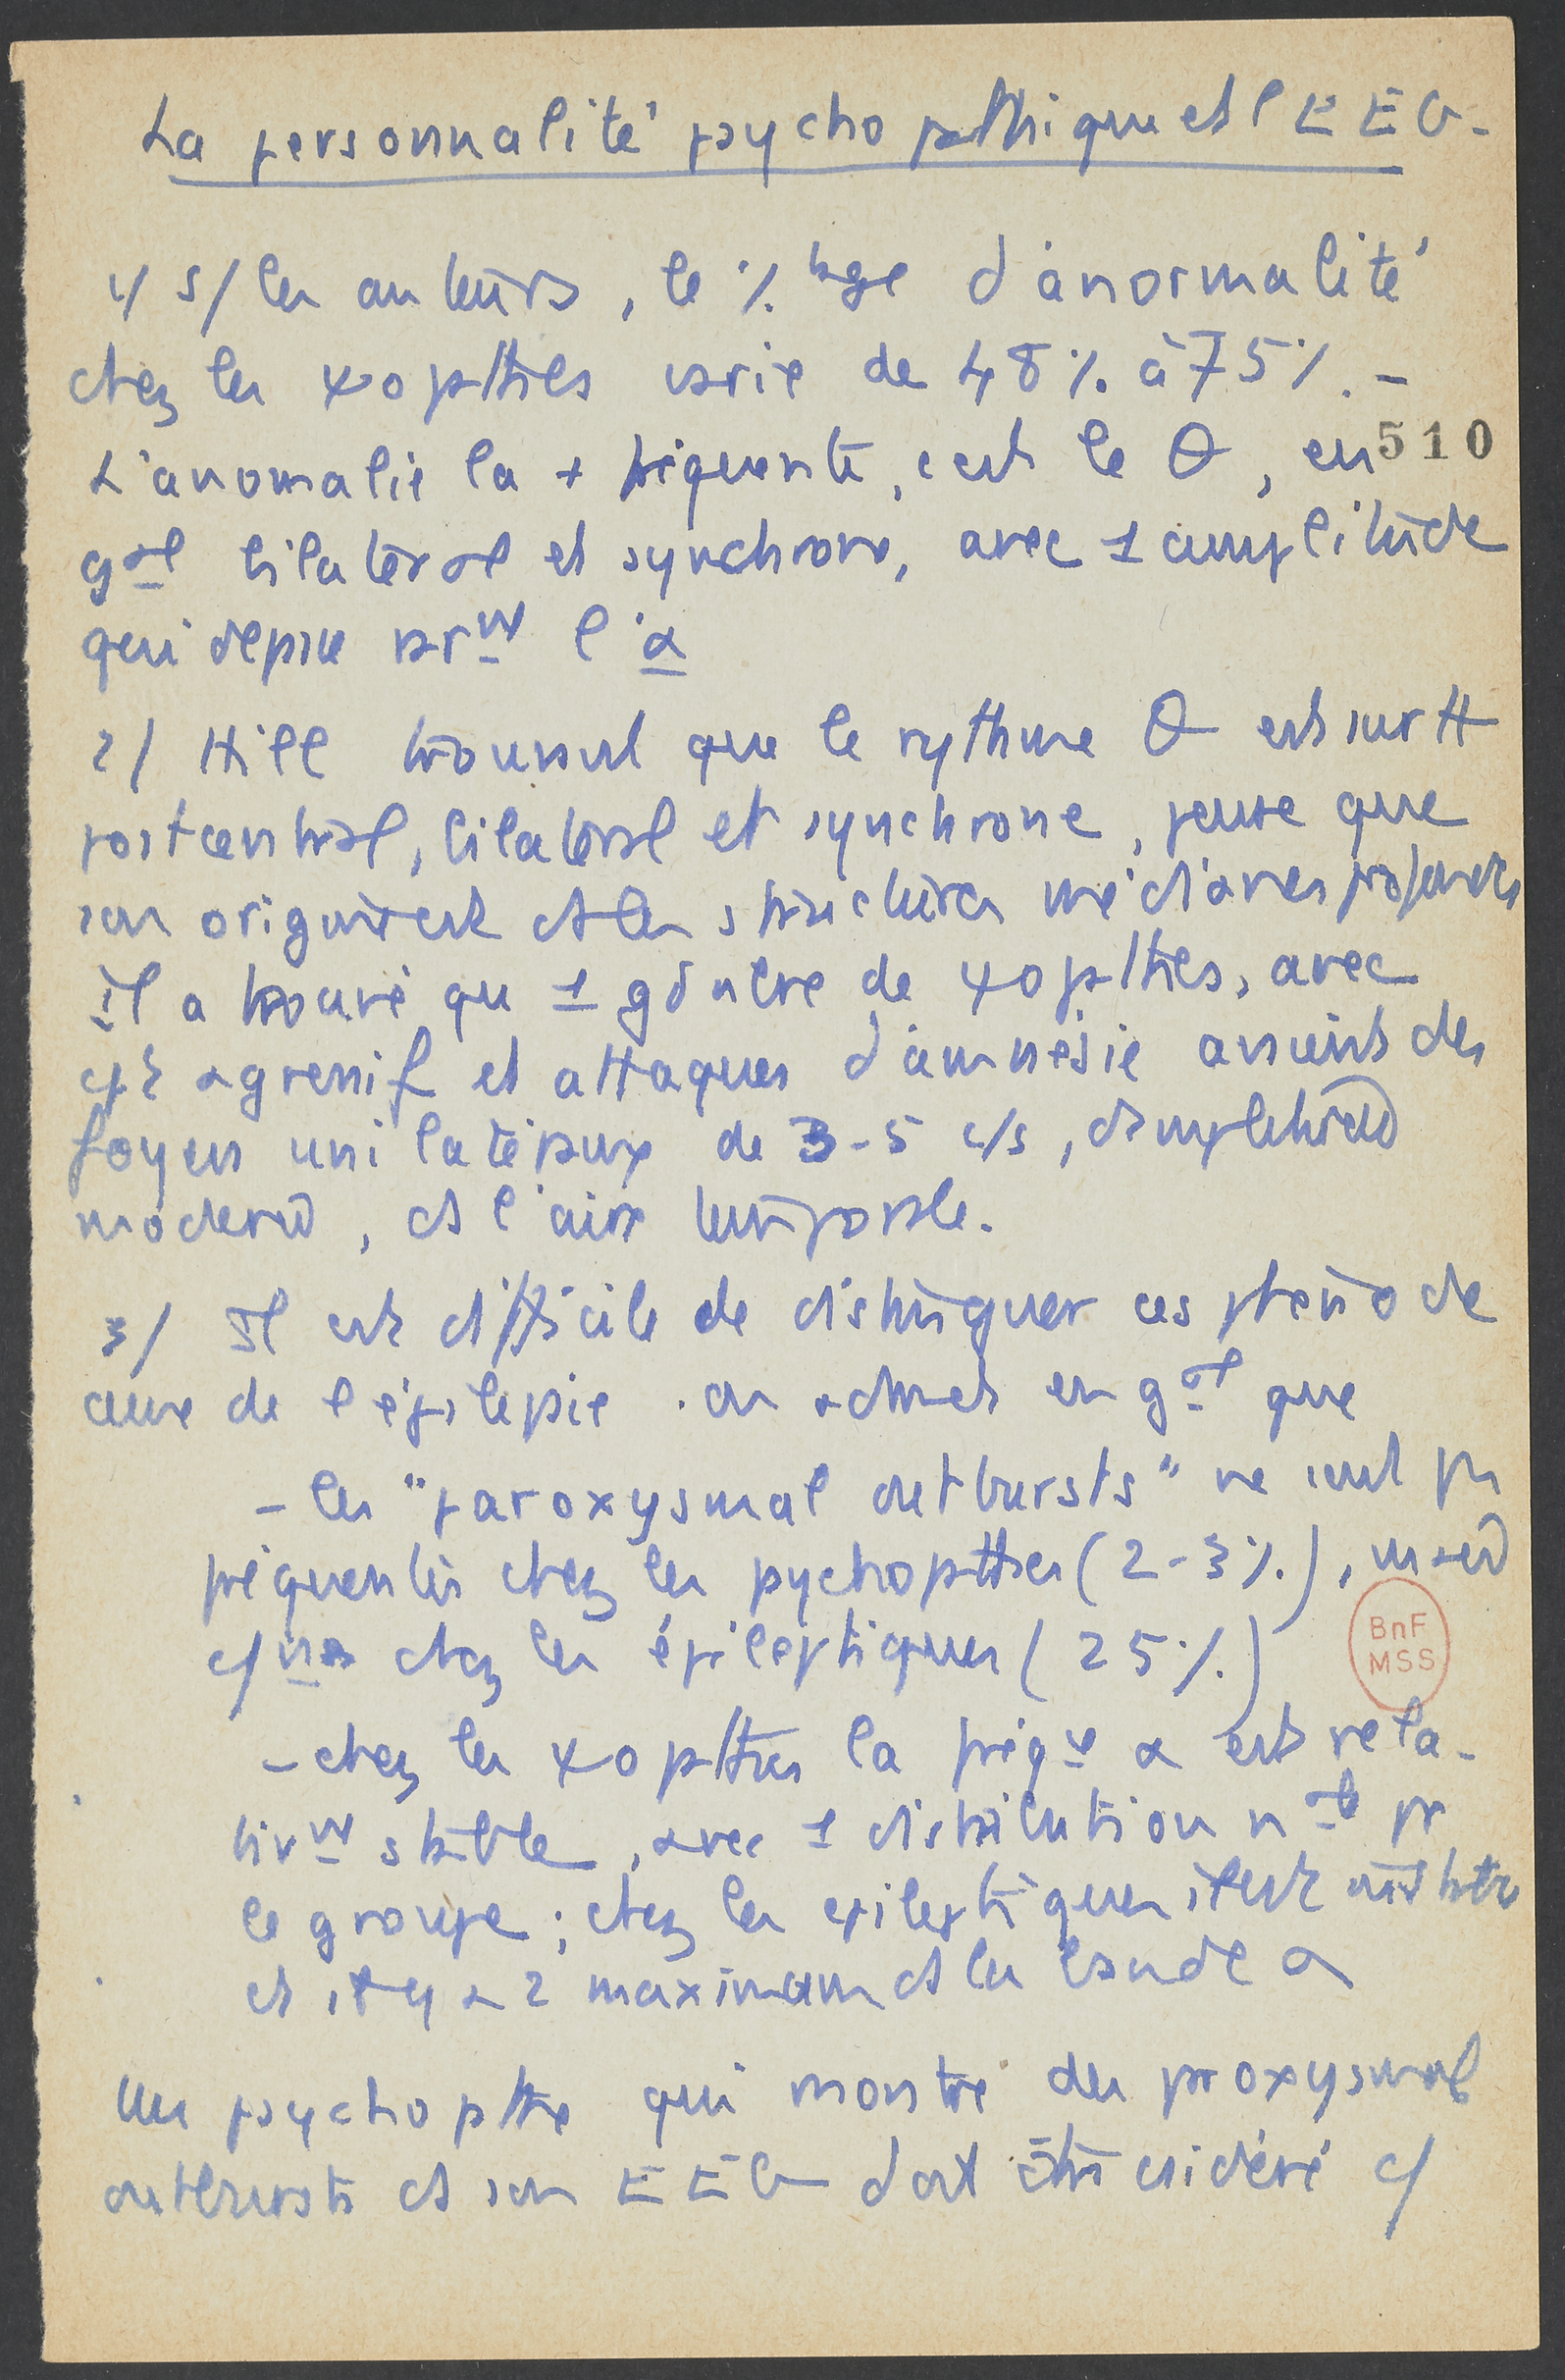 La personnalité psychopathique et l'EEG.
1/ s/ les auteurs, le %tage d'anormalité
chez les ψopthes varie de 48% à 75%. -
L'anomalie la + fréquente, c'est le θ, en
510
gal bilatéral et synchrone, avec 1 amplitude
qui dépasse rarmt l'α
2/ Hill trouvant que le rythme θ est surtt
postcentral, bilatéral et synchrone, pense que
son origine est ds les structures médianes profondes
il a trouvé qu 1 gd nbre de ψopthes, avec
cpt agressif et attaques d'amnésie avaient des
foyers unilatéraux de 3-5 c/s, d'amplitude
modérée, ds l'aire temporale.
3/ Il est difficile de distinguer ces phéno de
ceux de l'épilepsie. on admet en gal que
- les "paroxysmal outbursts" ne sont pas
fréquents chez les pychopthes (2-3%),
chez les épileptiques (25%)
- chez les ψopthes la fréqce α est rela-
tivmt stable, avec 1 distribution nale pr
le groupe ; chez les épileptiques il est
et il y a 2 maximum ds la bande α
Un psychopthe qui montre des proxysmal
outbursts ds son EEG doit être csidéré c/
BnF
MSS